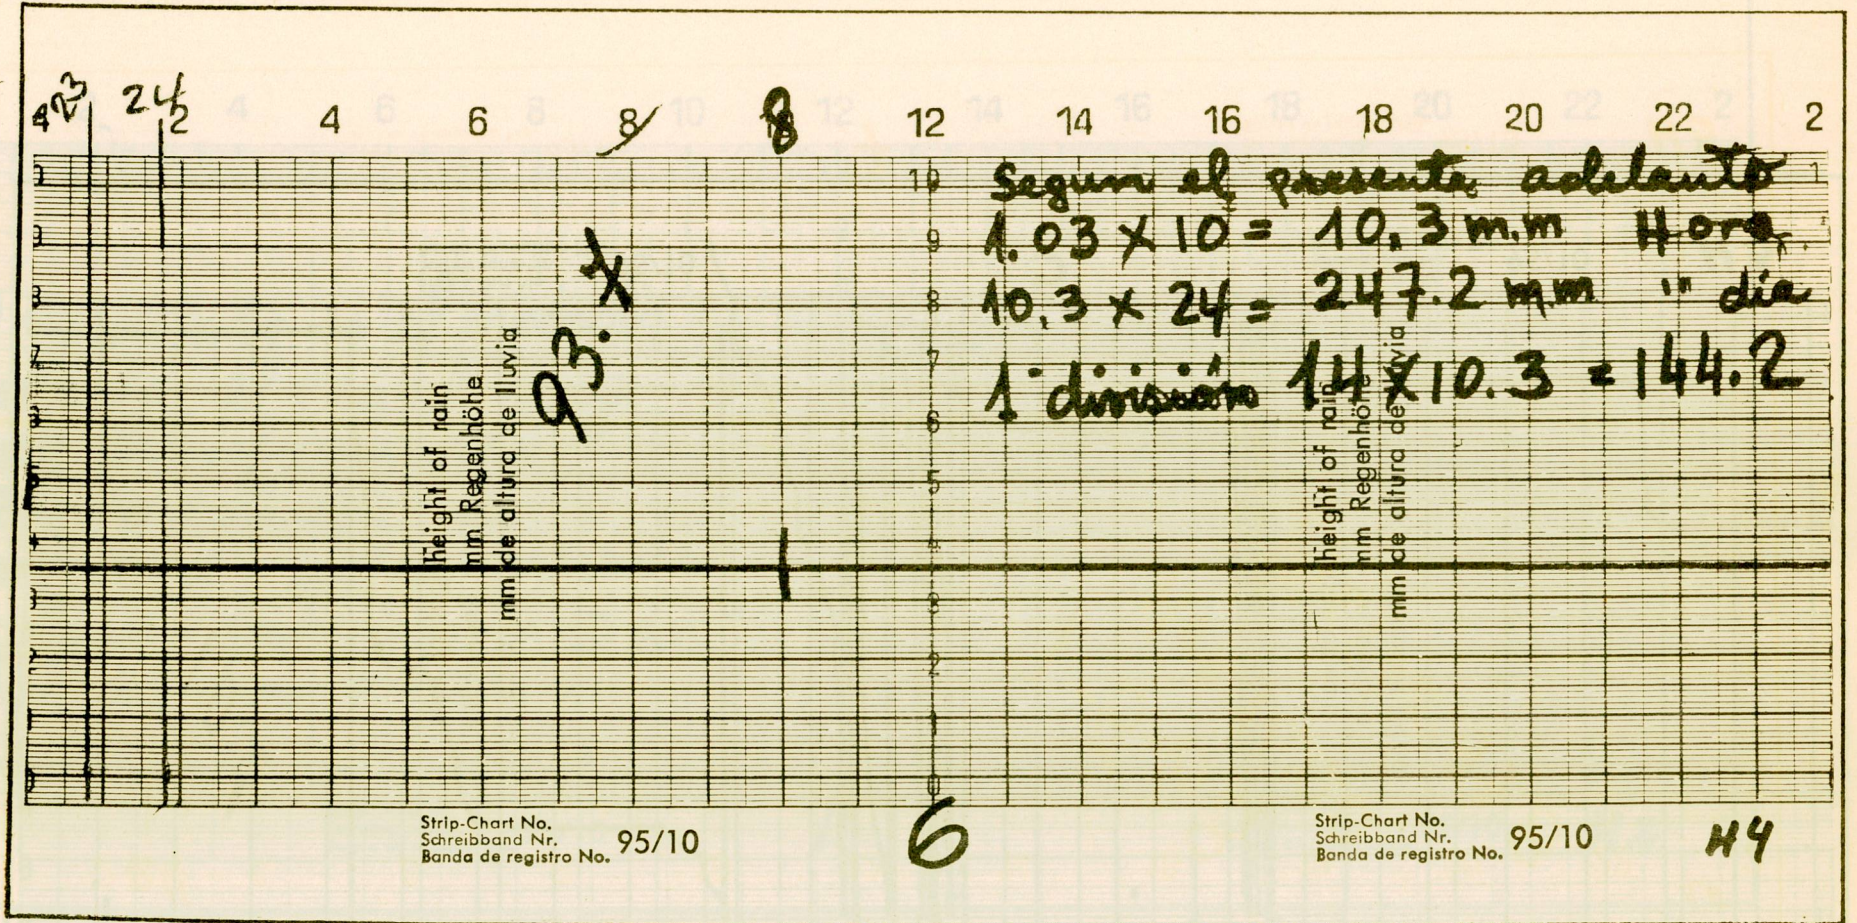 23 24
4 2 4 6 8 8 12 14 16 18 20 22 2
Segun el presente adelanto
1.03 X 10 = 10.3 m.m Hora
10.3 x 24 = 247.2 mm " dia
1ª división 14 X 10.3 = 144.2
10
9
8
7
6
5
4
3
2
1
0
height of rain
mm Regenhöhe
mm de altura de lluvia
height of rain
mm Regenhöhe
mm de altura de lluvia
Strip-Chart No.
Schreibband Nr. 95/10
Banda de registro No.
6
Strip-Chart No.
Schreibband Nr. 95/10
Banda de registro No.
H4